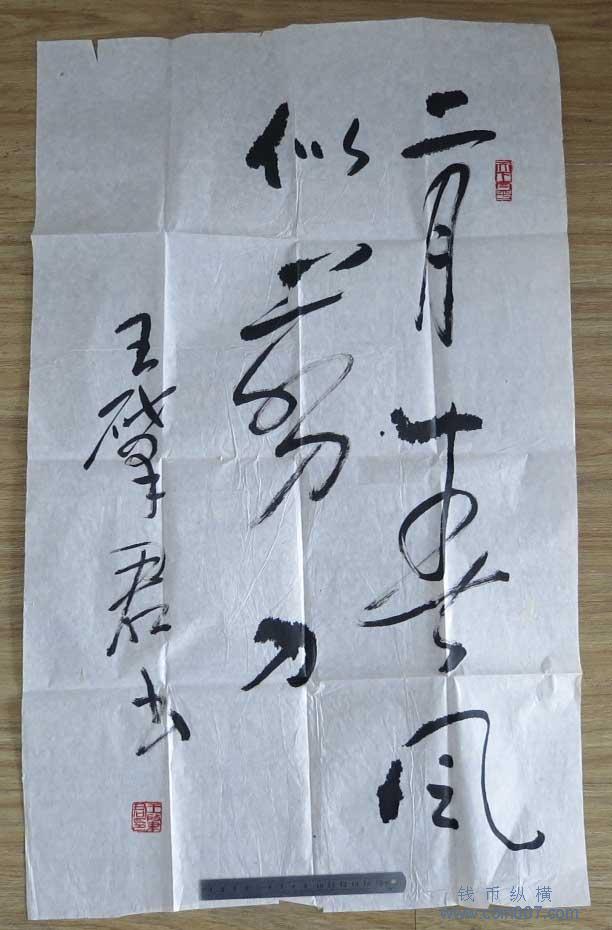 二月春风
似剪刀
王肇君书
钱币纵横
www.coin007.com